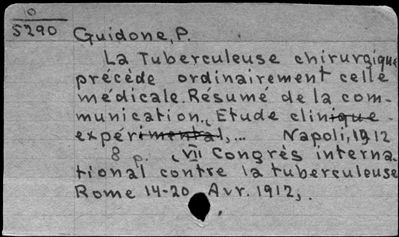 O
5290
Guidone, P.
La Tuberculeuse chirurgique
précède ordinairement celle
médicale. Résumé de la com-
munication., Etude clinique-
expérimental,... Napoli, 1912
8 p. (VII Congrès interna-
tional contre la tuberculeuse
Rome 14-20 Avr. 1912,.